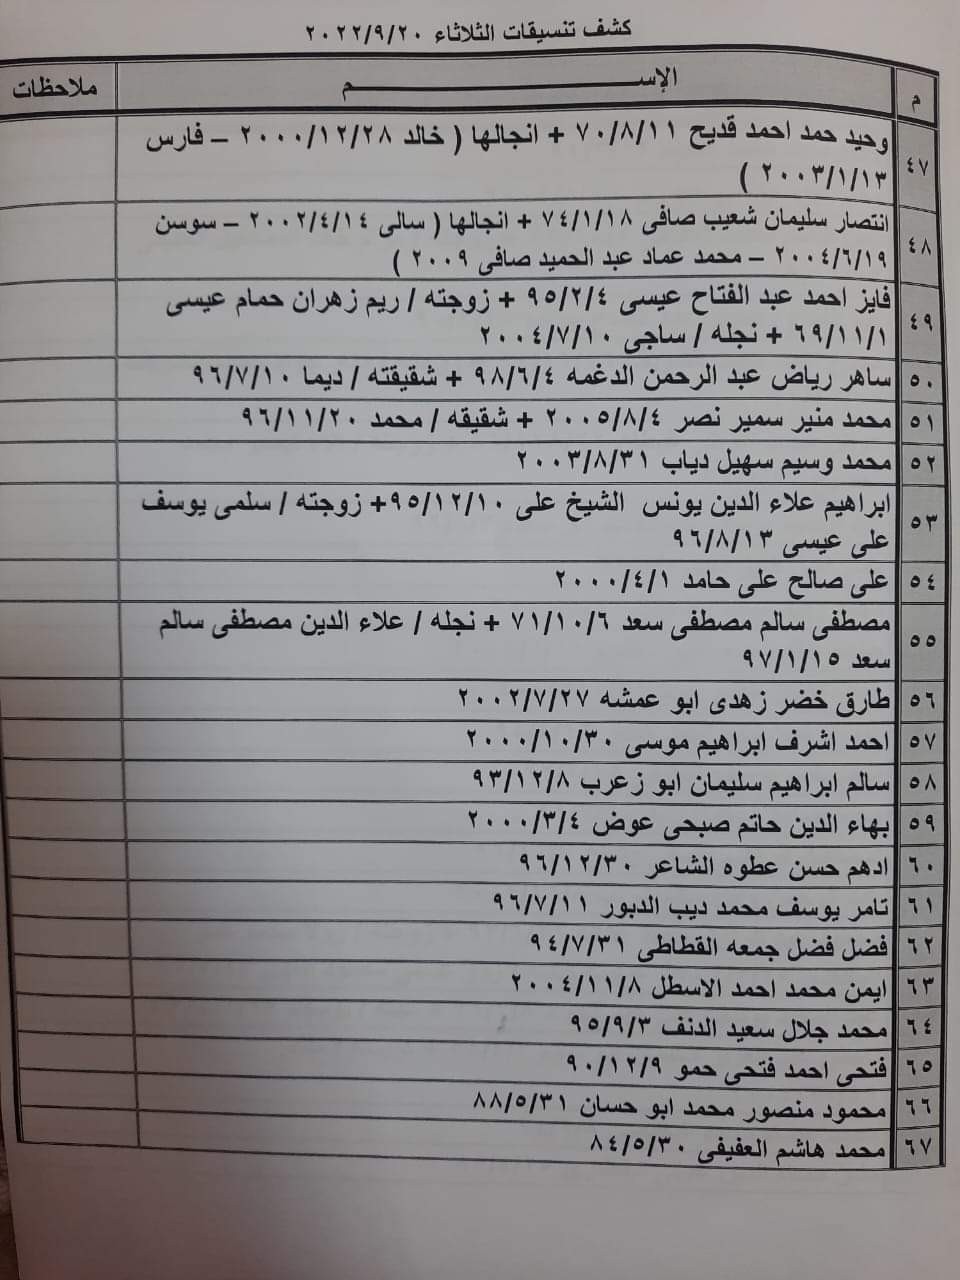 كشف تنسيقات الثلاثاء ٢٠٢٢/٩/٢٠
م الإســـــــــــم ملاحظات
٤٧ وحيد حمد احمد قديح ٧٠/٨/١١ + انجالها ( خالد ٢٠٠٠/١٢/٢٨ – فارس
٢٠٠٣/١/١٣ )
٤٨ انتصار سليمان شعيب صافى ٧٤/١/١٨ + انجالها ( سالى ٢٠٠٢/٤/١٤ – سوسن
٢٠٠٤/٦/١٩ – محمد عماد عبد الحميد صافى ٢٠٠٩ )
٤٩ فايز احمد عبد الفتاح عيسى ٩٥/٢/٤ + زوجته / ريم زهران حمام عيسى
٦٩/١١/١ + نجله / ساجى ٢٠٠٤/٧/١٠
٥٠ ساهر رياض عبد الرحمن الدغمه ٩٨/٦/٤ + شقيقته / ديما ٩٦/٧/١٠
٥١ محمد منير سمير نصر ٢٠٠٥/٨/٤ + شقيقه / محمد ٩٦/١١/٢٠
٥٢ محمد وسيم سهيل دياب ٢٠٠٣/٨/٣١
٥٣ ابراهيم علاء الدين يونس الشيخ على ٩٥/١٢/١٠+ زوجته / سلمى يوسف
على عيسى ٩٦/٨/١٣
٥٤ على صالح على حامد ٢٠٠٠/٤/١
٥٥ مصطفى سالم مصطفى سعد ٧١/١٠/٦ + نجله / علاء الدين مصطفى سالم
سعد ٩٧/١/١٥
٥٦ طارق خضر زهدى ابو عمشه ٢٠٠٢/٧/٢٧
٥٧ احمد اشرف ابراهيم موسى ٢٠٠٠/١٠/٣٠
٥٨ سالم ابراهيم سليمان ابو زعرب ٩٣/١٢/٨
٥٩ بهاء الدين حاتم صبحى عوض ٢٠٠٠/٣/٤
٦٠ ادهم حسن عطوه الشاعر ٩٦/١٢/٣٠
٦١ تامر يوسف محمد ديب الدبور ٩٦/٧/١١
٦٢ فضل فضل جمعه القطاطى ٩٤/٧/٣١
٦٣ ايمن محمد احمد الاسطل ٢٠٠٤/١١/٨
٦٤ محمد جلال سعيد الدنف ٩٥/٩/٣
٦٥ فتحى احمد فتحى حمو ٩٠/١٢/٩
٦٦ محمود منصور محمد ابو حسان ٨٨/٥/٣١
٦٧ محمد هاشم العفيفى ٨٤/٥/٣٠